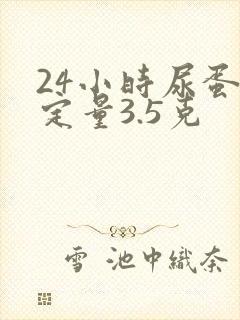 24小時尿蛋
定量3.5克
雪 池中織奈